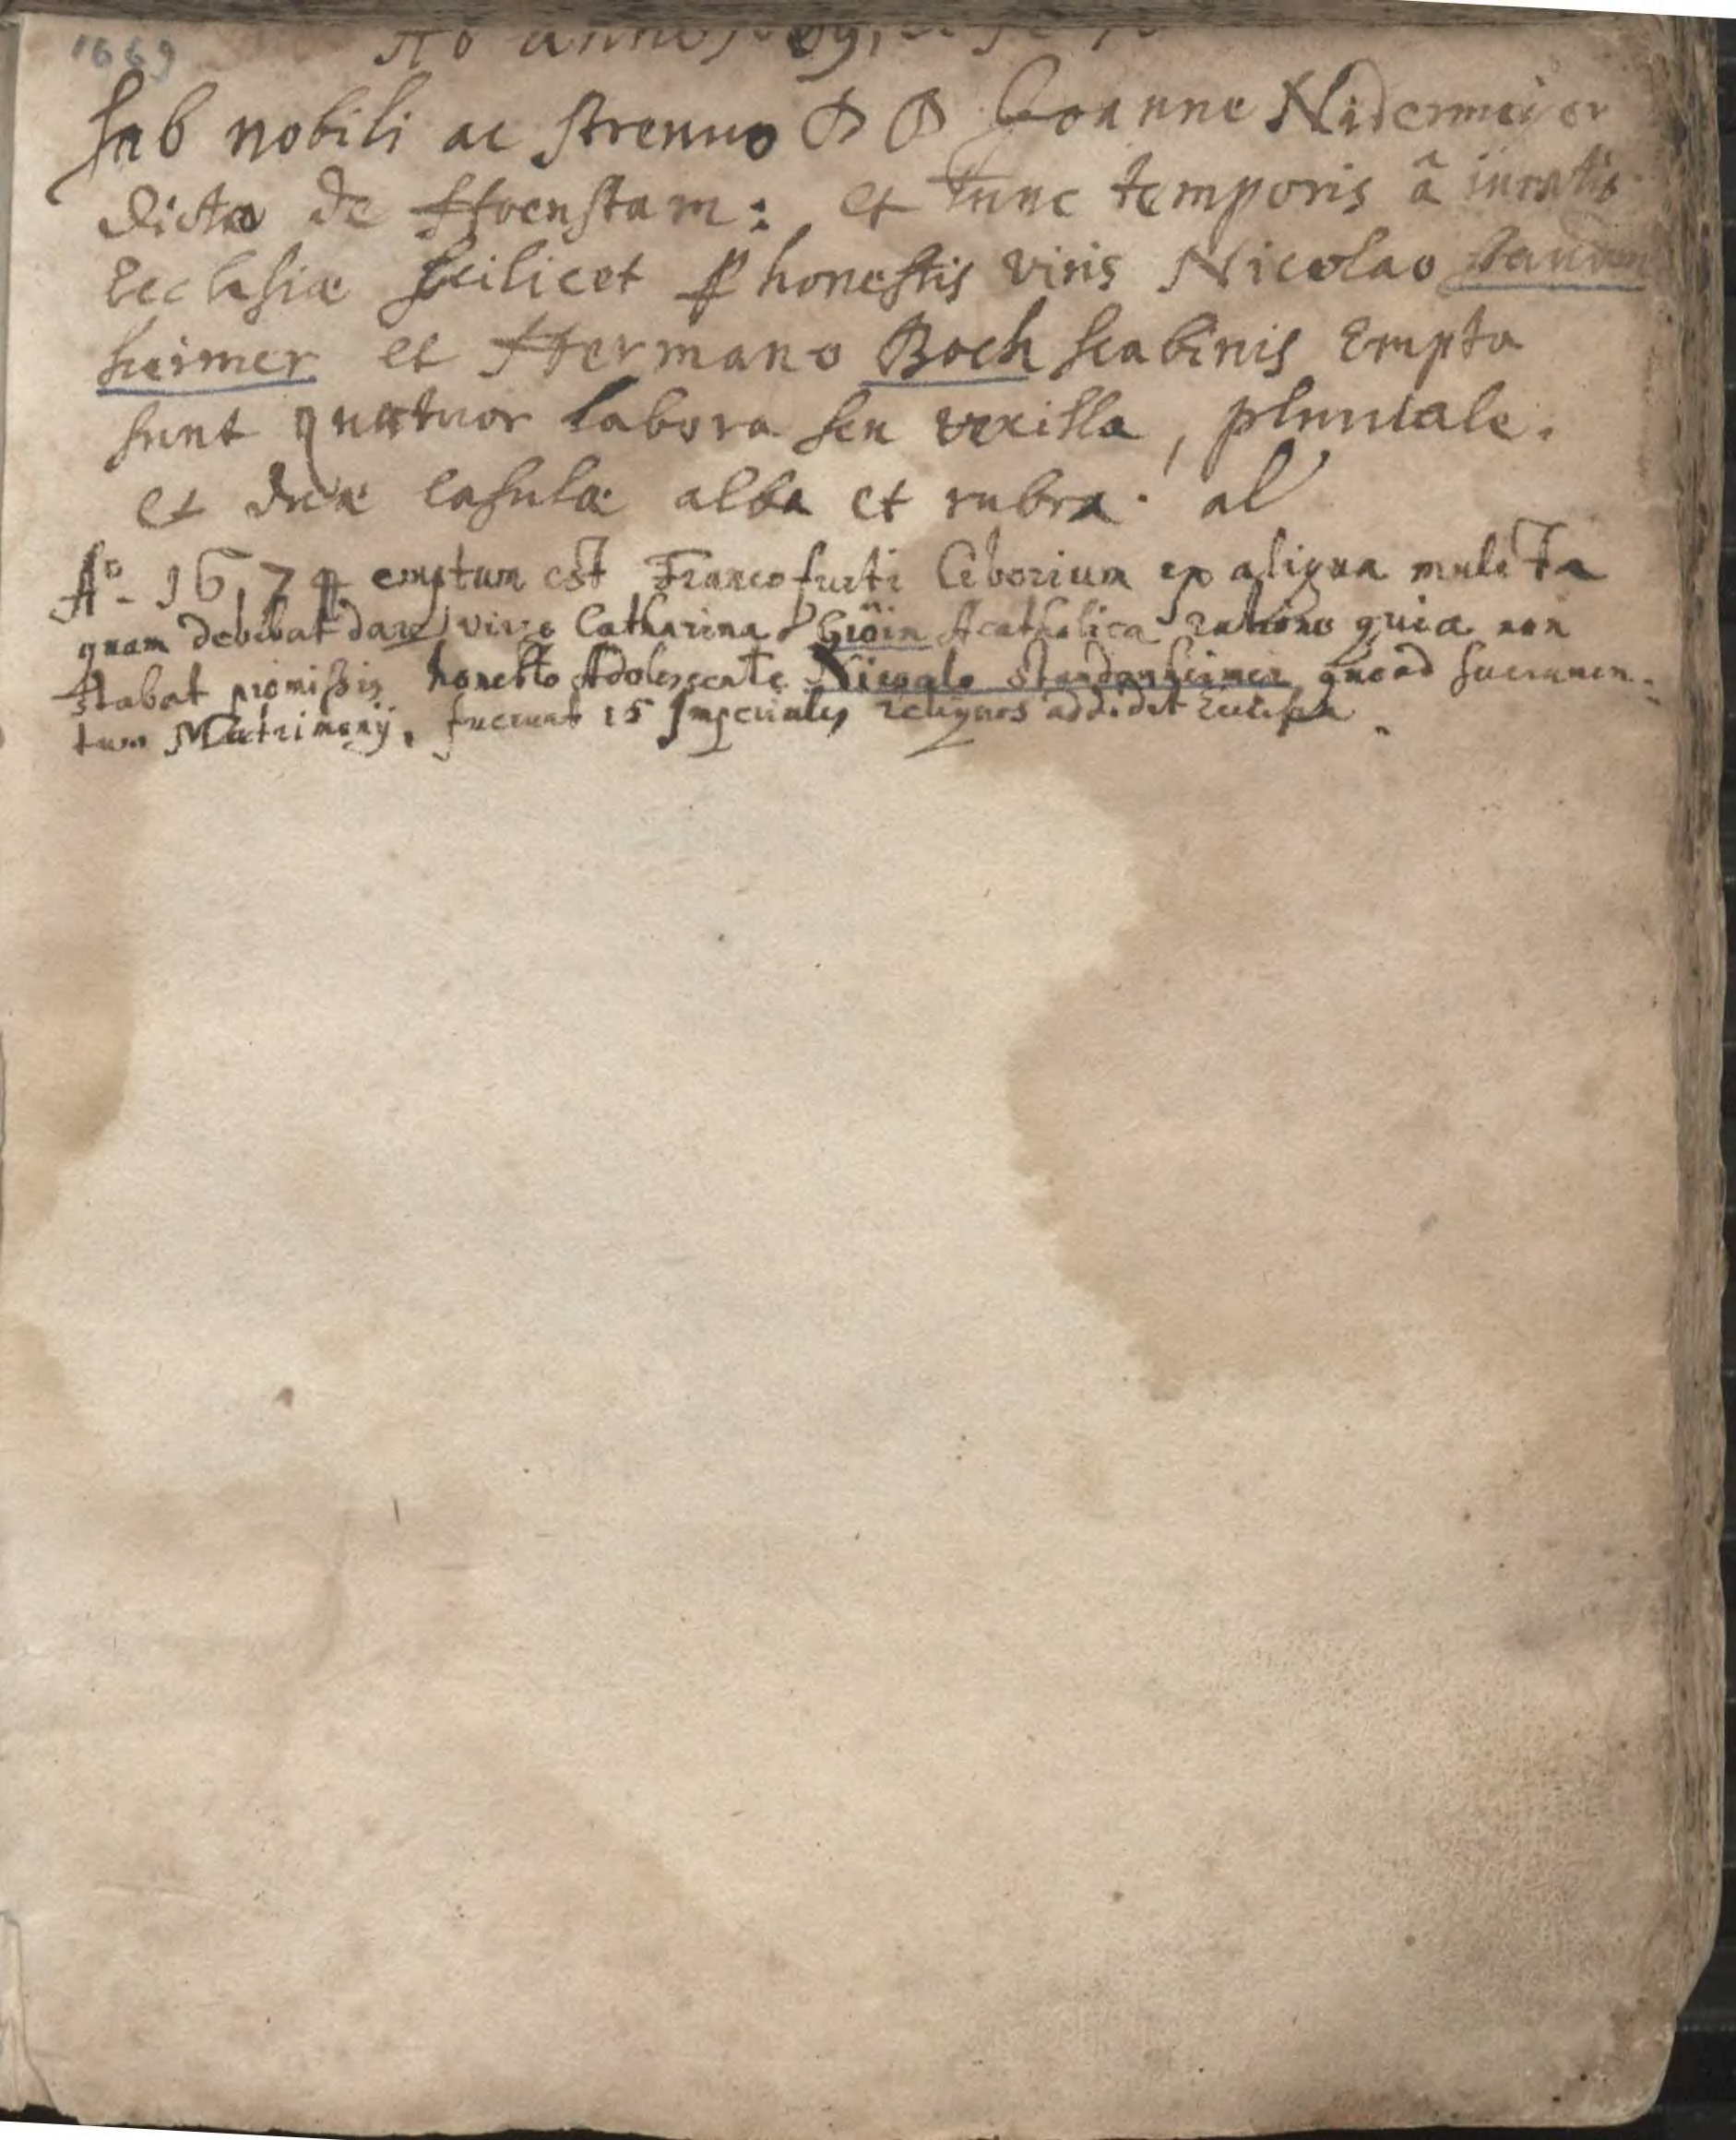 1669
anno
sub nobili ac strenuo D D Joanne Nidermeier
dicto de Hoenstam: et tunc temporis â iuratis
Ecclesiæ scilicet honestis viris Nicolao standen
heimer et Hermano Boch scabinis Empta
sunt quatuor labora seu vexilla, pluuiale.
et duæ casulæ alba et rubra. al
Ao. 1674 emptum est Francofurti Ciborium ex aliqua mulcta
quam debebat dare virgo Catharina Acatholica ratione quia non
stabat promissis honesto Adolescente Nicoalo standenheimer quoad sacramen-
tum Matrimonij, fuerunt 15 Imperiales reliquos addidit